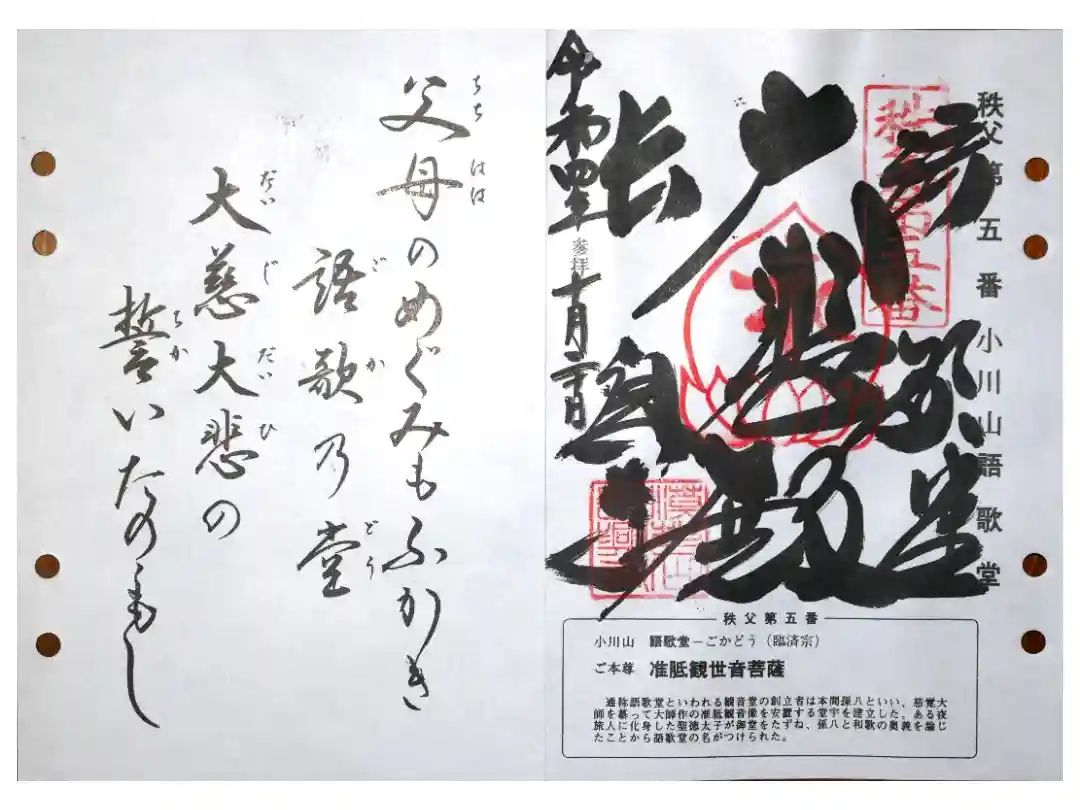 秩父第五番 小川山語歌堂
秩父第五番
大悲殿
長興寺
令和四年 参拝
秩父第五番
小川山 語歌堂－ごかどう（臨済宗）
ご本尊 准胝観世音菩薩
通称語歌堂といわれる観音堂の創立者は本間孫八といい、慈覚大
師を慕って大師作の准胝観音像を安置する堂宇を建立した。ある夜
旅人に化身した聖徳太子が御堂をたずね、孫八と和歌の奥義を論じ
たことから語歌堂の名がつけられた。
父母のめぐみもふかき
ちちはは
語歌乃堂
ごかどう
大慈大悲の
だいじだいひ
誓いたのもし
ちか